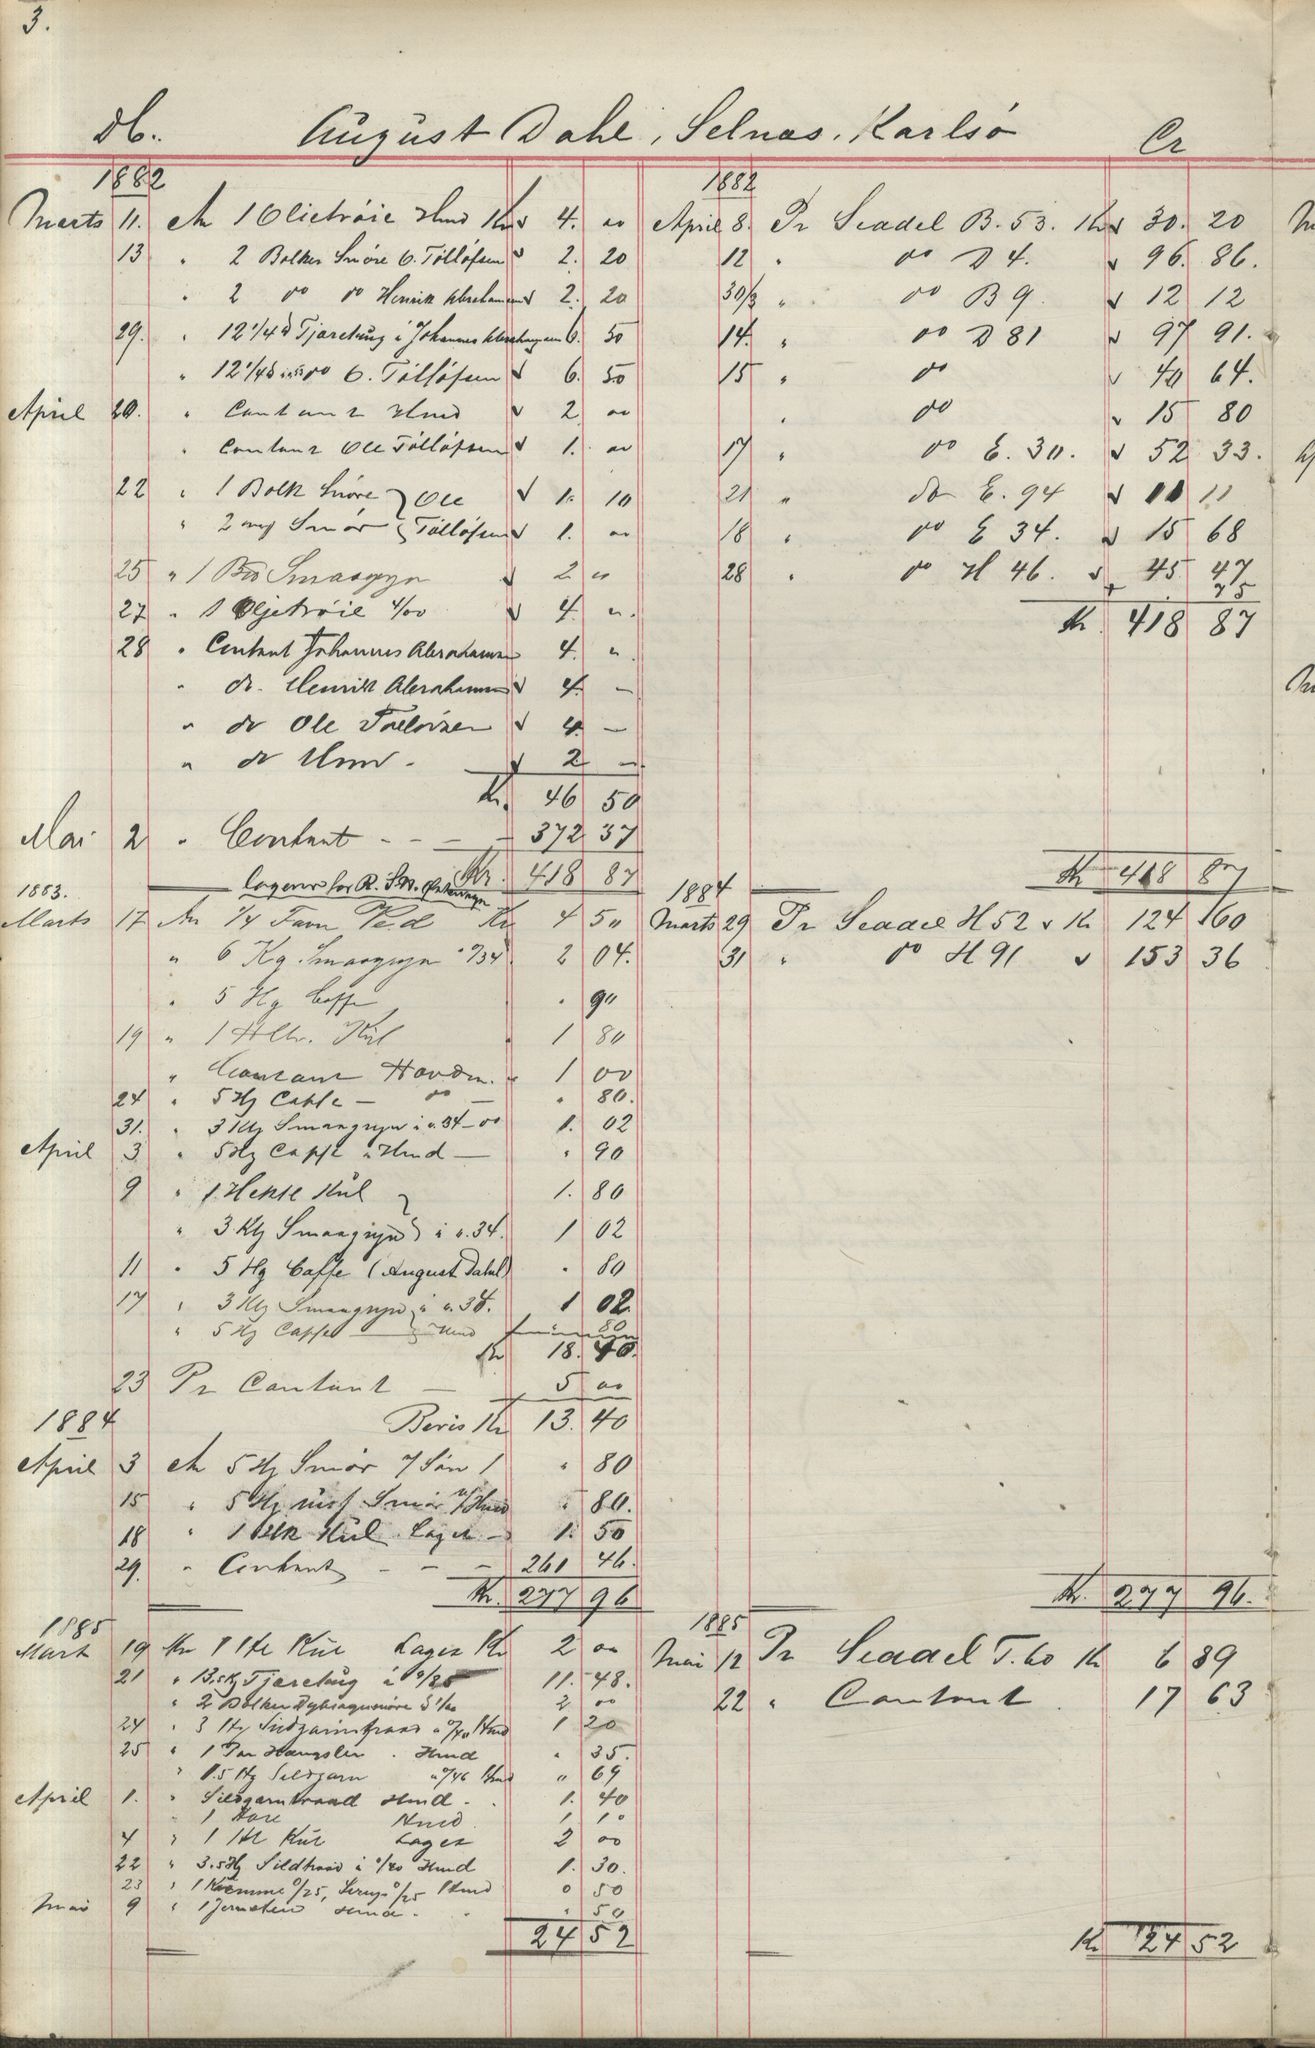 3.
Db. August Dahl, Selnas, Karlsö Cr
1882
Marts 11. An 1 Olietröie Hmd Kr 4. 00
13 " 2 Bolker Snöre O. Tölløfsen 2. 20
" 2 do do Henrik Abrahamsen 2. 20
29. " 12 1/4 Tjaretoug i Johannes Abrahamsen 6. 50
" 12 1/4 do O. Tölløfsen 6. 50
April 20. " Contant Hmd 2 00
" Contant Ole Tölløfsen 1. 00
22 " 1 Bolk Snöre } Ole 1. 10
" 2 Smör } Tölløfsen 1. 00
25 " 1 Smaagryn 2 00
27 " 1 Oljetröie 4/00 4. "
28 " Contant Johannes Abrahamsen 4. "
" do. Henrik Abrahamsen 4. —
" do Ole 4. —
" do Hmd. 2 —
Kr. 46 50
Mai 2 " Contant - - - - 372 37
Kr. 418 87
1882
April 8. Pr Seadel B. 53. Kr 30. 20
12 " do D 4. 96. 86.
30/3 " do B 9. 12 12
14. " do D 81 97 91.
15 " do 40 64.
" do 15 80
17 " do E. 30. 52 33.
21 " do E. 94 11 11
18 " do E 34. 15 68
28 " do H 46. 45 47
75
Kr. 418 87
Kr 418 87
1883.
Marts 17 An 1/4 Favn Ved Kr 4 50
" 6 Kg. Smaagryn " 0/34 2 04.
" 5 Hg Caffe " 90
19 " 1 Hltr. Kul 1 80
" Contant 1 00
24 " 5 Hg Caffe — do — " 80.
31. " 3 Kg Smaagryn i o.34 — do 1. 02
April 3 " 5 Hg Caffe Hmd — " 90
9 " 1. Hekt Kul 1. 80
" 3 Kg Smaagryn i o.34. 1 02
11 " 5 Hg Caffe (August Dahl) " 80
17 " 3 Kg Smaagryn i o.34. 1 02.
" 5 Hg Caffe — Hmd " 80
Kr 18. 40.
23 Pr Contant — 5 00
Kr 13. 40
1884
April 3 An 5 Hg Smör " 80
15 " 5 Hg Smör Hmd " 80.
18 " 1 Hk Kul Lager — 1. 50
29. " Contant - - - 261 46.
Kr. 277 96
1884
Marts 29 Pr Seadel H 52 Kr 124 60
31 " do H 91 153 36
Kr. 277 96.
1885
Mart 19 An 1 He Kul Lager Kr 2 00
21 " 13.5 Kg Tjaretoug á 0/85 11. 48.
" 2 Bolker 2 00
24 " 3 Hg 0/40 Hmd 1 20
25 " 1 Par Hængsler. Hmd " 35.
" 1.5 Hg Sildgarn 0/46 Hmd " 69
April 1. " Sildgarntraad Hmd. 1. 40
" 1 Hmd 1. 10
4 " 1 He Kul Lager 2 00
22 " 3.5 Hg Sildtraad á 0/40 Hmd 1. 30.
23 " 1 0/25, 0/25 Hmd 0 50
Mai 9 " 1 Hmd. " 50
24 52
1885
Mai 12 Pr Seadel T. 60 Kr 6 89
22 " Contant 17 63
Kr 24 52